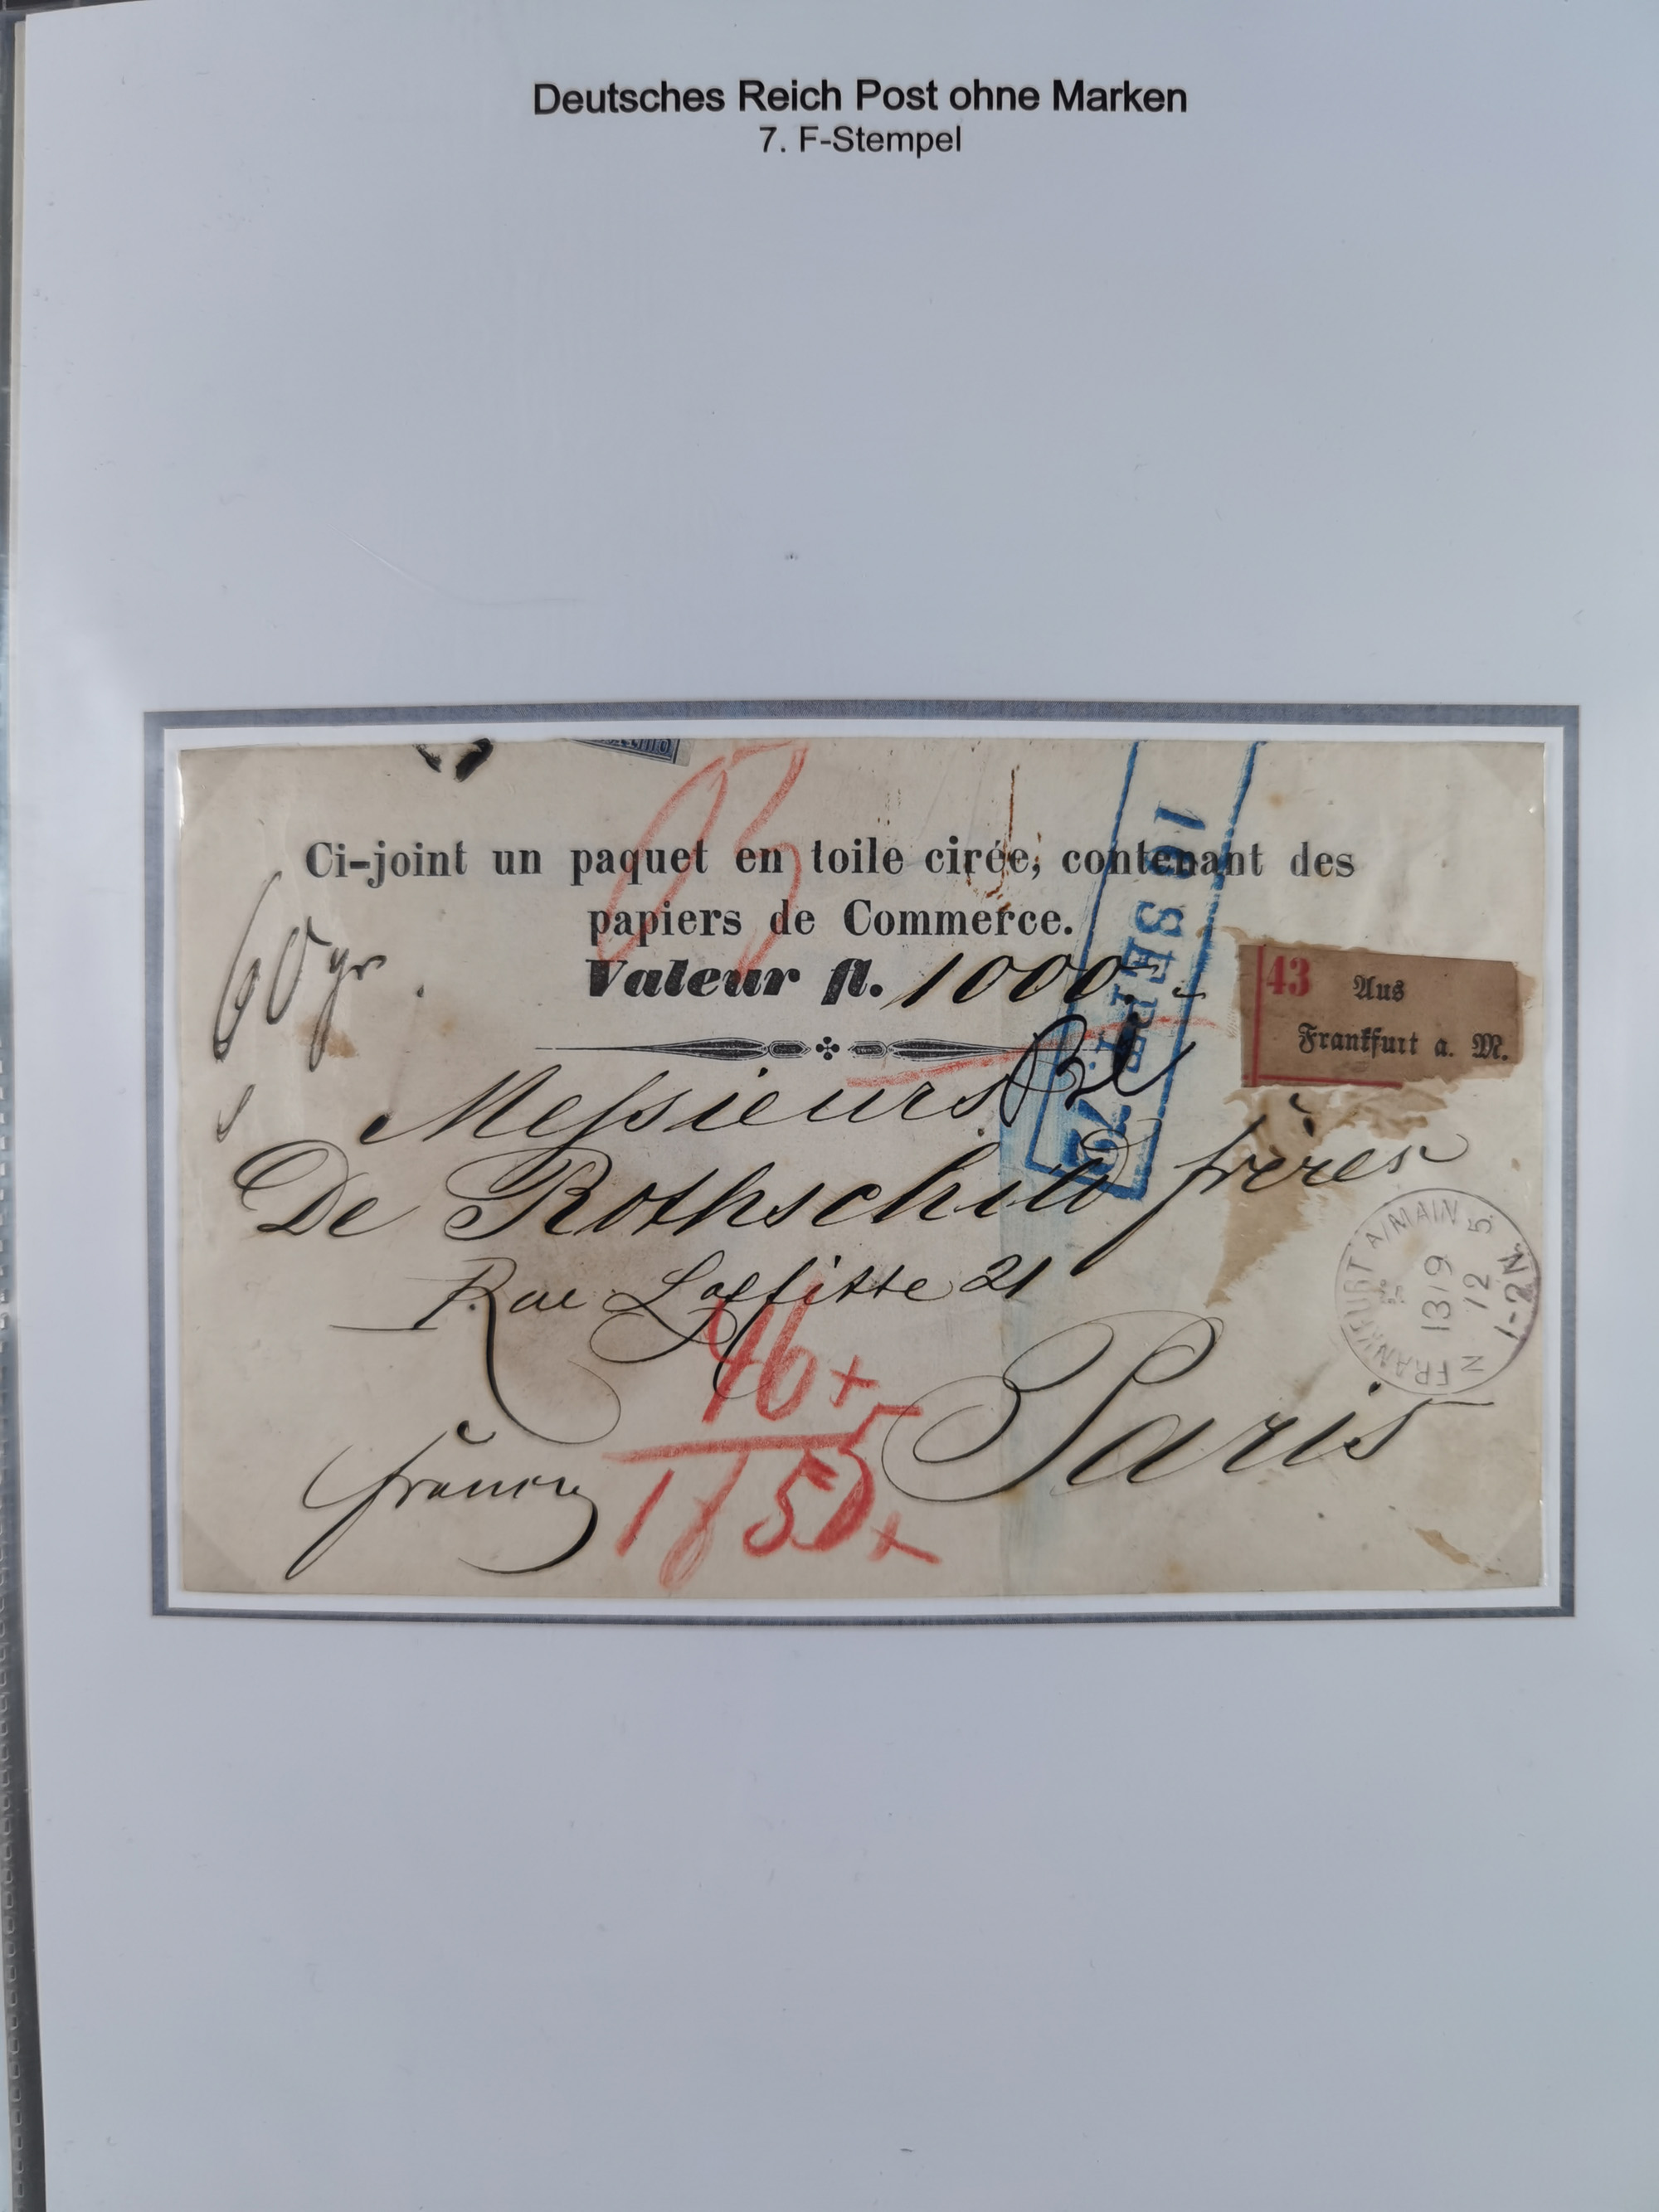 Deutsches Reich Post ohne Marken
7. F-Stempel
Ci-joint un paquet en toile cirée, contenant des
papiers de Commerce.
Valeur fl. 1000.
60 gr.
43 Aus
Frankfurt a. M.
SEPT. 72
Messieurs
De Rothschild frères
Rue Laffitte 21
Paris
46 x
1 f 55 x
FRANKFURT A/MAIN 5.
13 9
72
1-2 N.